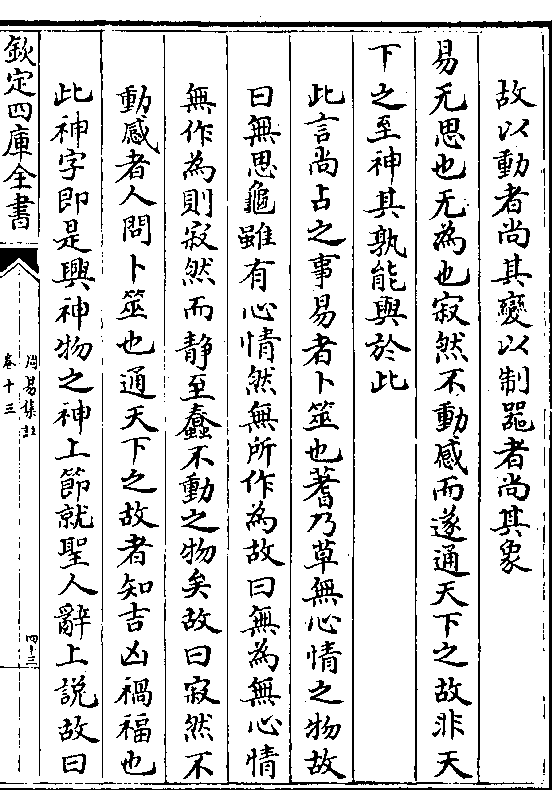 故以動者尚其變以制噐者尚其象
易无思也无為也寂然不動感而遂通天下之故非天
下之至神其孰能與於此
此言尚占之事易者卜筮也蓍乃草無心情之物故
曰無思龜雖有心情然無所作為故曰無為無心情
無作為則寂然而静至蠢不動之物矣故曰寂然不
動感者人問卜筮也通天下之故者知吉凶禍福也
此神字即是興神物之神上節就聖人辭上説故曰
欽定四庫全書
周易集註
卷十三
四十三